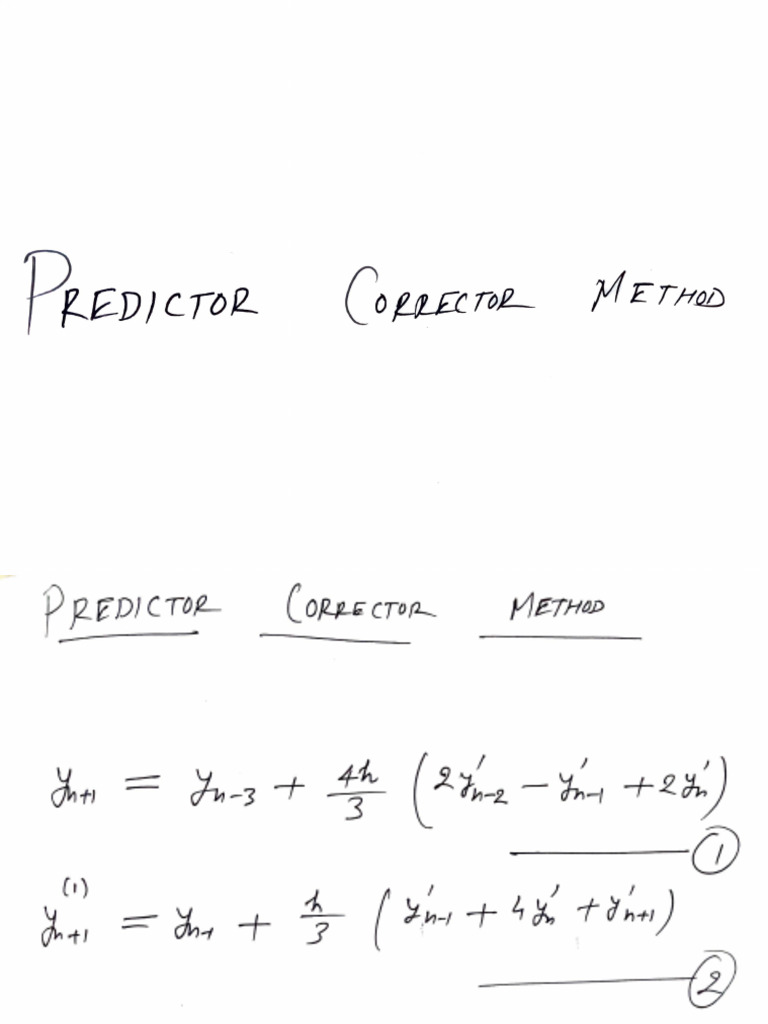 PREDICTOR CORRECTOR METHOD
PREDICTOR CORRECTOR METHOD
y_{n+1} = y_{n-3} + 4h/3 (2y'_{n-2} - y'_{n-1} + 2y'_n)
1
y_{n+1}^{(1)} = y_{n-1} + h/3 (y'_{n-1} + 4y'_n + y'_{n+1})
2